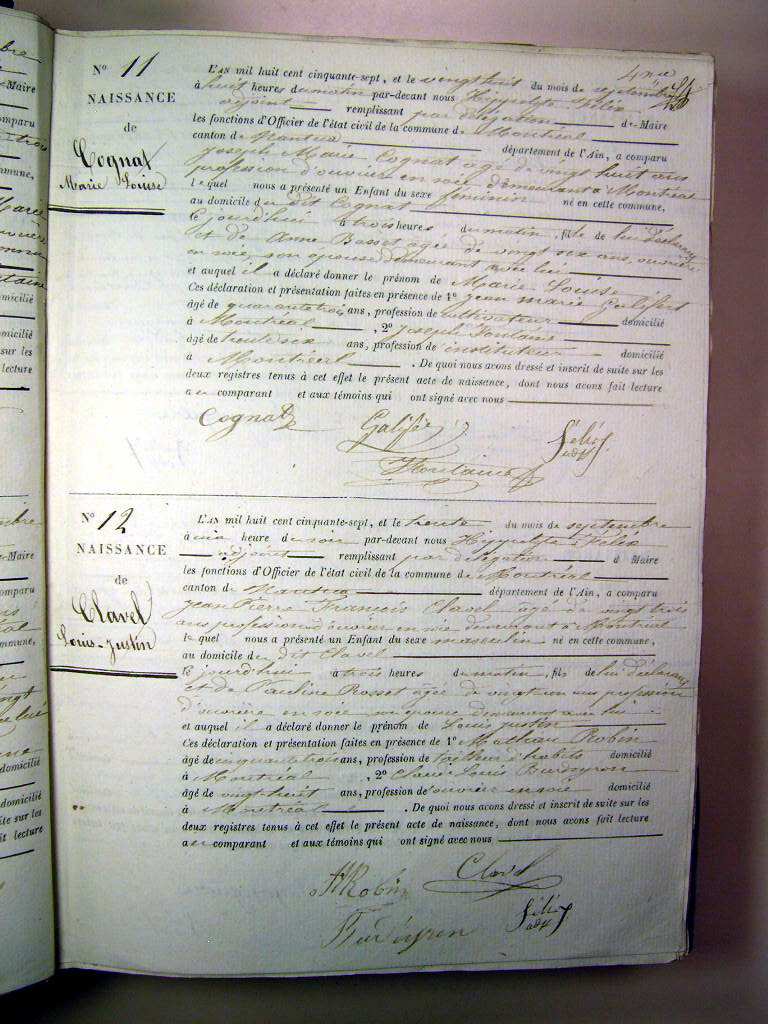 4me
N° 11
NAISSANCE
de
Cognat
Marie Louise
L'AN mil huit cent cinquante-sept, et le vingt huit du mois de septembre
à huit heures du matin par-devant nous Hippolyte Félix
adjoint remplissant par délégation de Maire
les fonctions d'Officier de l'état civil de la commune de Montréal
canton de Nantua département de l'Ain, a comparu
Joseph Marie Cognat âgé de vingt huit ans
profession d'ouvrier en soie demeurant à Montréal
lequel nous a présenté un Enfant du sexe féminin né en cette commune,
au domicile du dit Cognat
Cejourdhui à trois heures du matin, fille de lui déclarant
et de Anne Basset âgée de vingt six ans, ouvrière
en soie, son épouse demeurant avec lui
et auquel il a déclaré donner le prénom de Marie Louise
Ces déclaration et présentation faites en présence de 1° Jean Marie
âgé de quarante trois ans, profession de cultivateur domicilié
à Montréal, 2° Joseph Fontaine
âgé de trente six ans, profession de instituteur domicilié
à Montréal. De quoi nous avons dressé et inscrit de suite sur les
deux registres tenus à cet effet le présent acte de naissance, dont nous avons fait lecture
au comparant et aux témoins qui ont signé avec nous
Cognat
Fontaine
Félix adj
N° 12
NAISSANCE
de
Clavel
Louis-Justin
L'AN mil huit cent cinquante-sept, et le trente du mois de septembre
à une heure du soir par-devant nous Hippolyte Félix
adjoint remplissant par délégation d Maire
les fonctions d'Officier de l'état civil de la commune de Montréal
canton de Nantua département de l'Ain, a comparu
Jean Pierre François Clavel âgé de vingt trois
ans profession d'ouvrier en soie demeurant à Montréal
lequel nous a présenté un Enfant du sexe masculin né en cette commune,
au domicile du dit Clavel
Cejourdhui à trois heures du matin, fils de lui déclarant
et de Pauline Rosset âgée de vingt un ans profession
d'ouvrière en soie son épouse demeurant avec lui
et auquel il a déclaré donner le prénom de Louis Justin
Ces déclaration et présentation faites en présence de 1° Robin
âgé de cinquante trois ans, profession de tailleur d'habits domicilié
à Montréal, 2° Louis
âgé de vingt huit ans, profession d'ouvrier en soie domicilié
à Montréal. De quoi nous avons dressé et inscrit de suite sur les
deux registres tenus à cet effet le présent acte de naissance, dont nous avons fait lecture
au comparant et aux témoins qui ont signé avec nous
Clavel
Robin
Félix adj